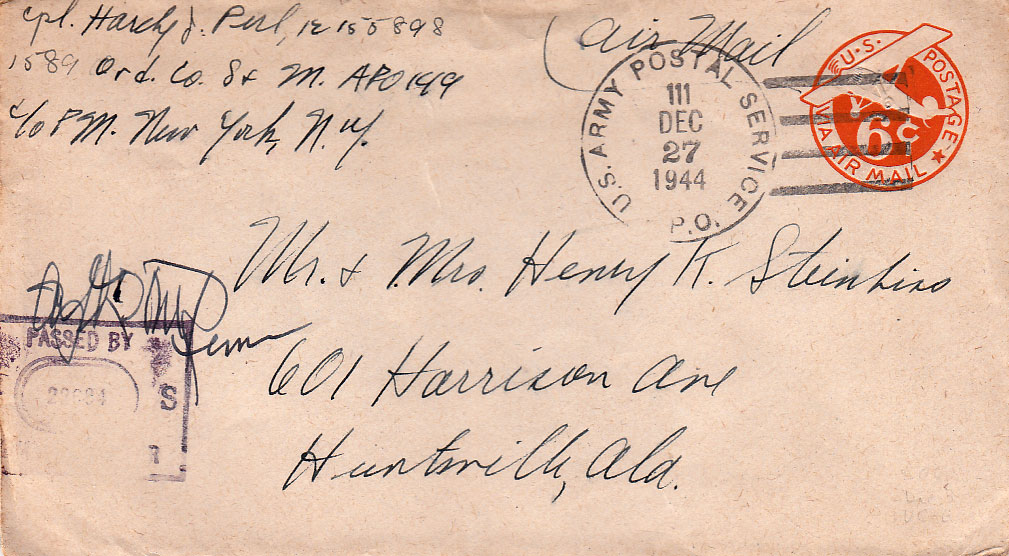 Cpl. Hardy J. Perl, 12155898
1589 Ord. Co. S & M. APO 149
c/o P.M. New York, N.Y.
Air Mail
U.S. ARMY POSTAL SERVICE
111
DEC
27
1944
P.O.
U.S. POSTAGE
6c
VIA AIR MAIL
Mr. & Mrs. Henry K.
601 Harrison Ave
Huntsville, Ala.
PASSED BY
S